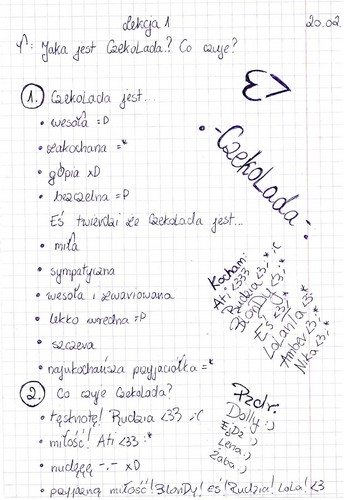 Lekcja 1 20.02
T: Jaka jest Czekolada? Co czuje?
1. Czekolada jest...
• wesoła =D
• zakochana =*
• głópia xD
• bezczelna =P
Eś twierdzi że Czekolada jest...
• miła
• sympatyczna
• wesoła i zwariowana
• lekko wredna =P
• szczera
• najukochańsza przyjaciółka =*
2. Co czuje Czekolada?
• tęsknotę! Rudzia <33 ;C
• miłość! Ati <33 :*
• nudzęę -.- xD
• przyjazną miłość! BlonDy! Eś! Rudzia! LoLa! <3
<3
•-Czekolada-•
Kocham:
Ati <333
Rudzia <3;* ;C
BlonDy <3;*
Eś <3;*
LoLanTa <3;*
Amber <3;*
Nika <3;*
Pzdr.
Dolly:)
EjDż:)
Lena:)
Żaba:)